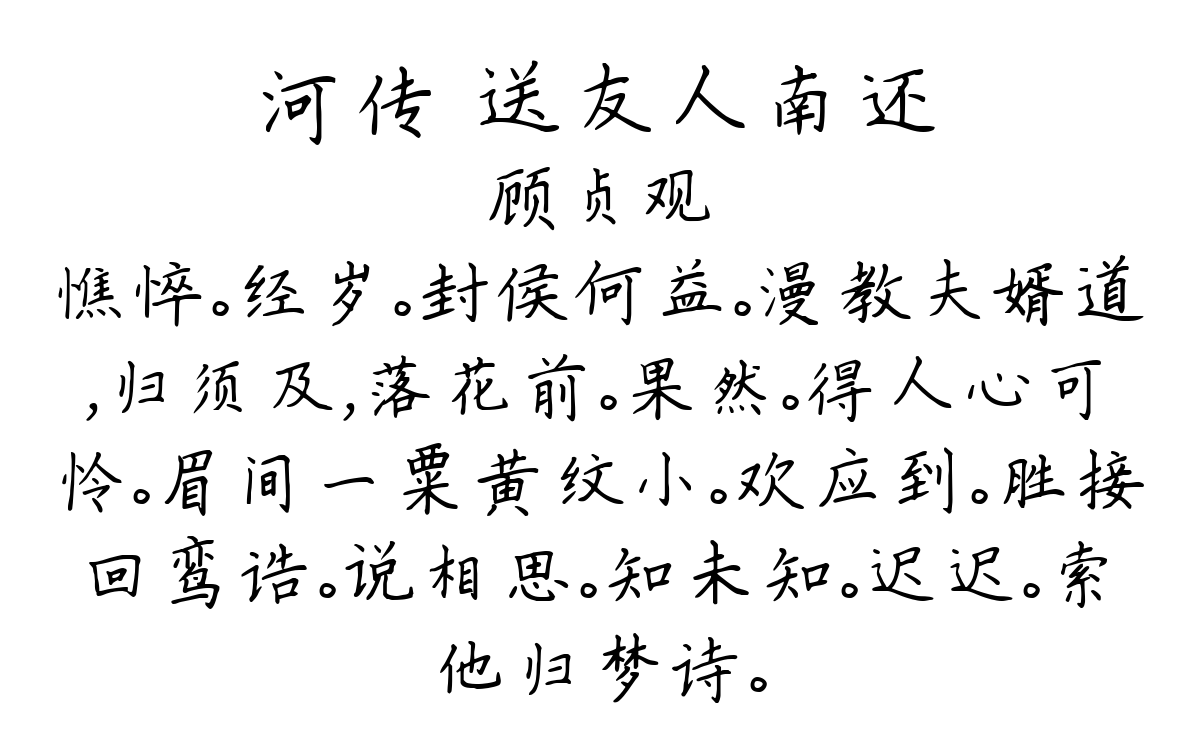 河传 送友人南还
顾贞观
憔悴。经岁。封侯何益。漫教夫婿道
,归须及,落花前。果然。得人心可
怜。眉间一粟黄纹小。欢应到。胜接
回鸾诰。说相思。知未知。迟迟。索
他归梦诗。